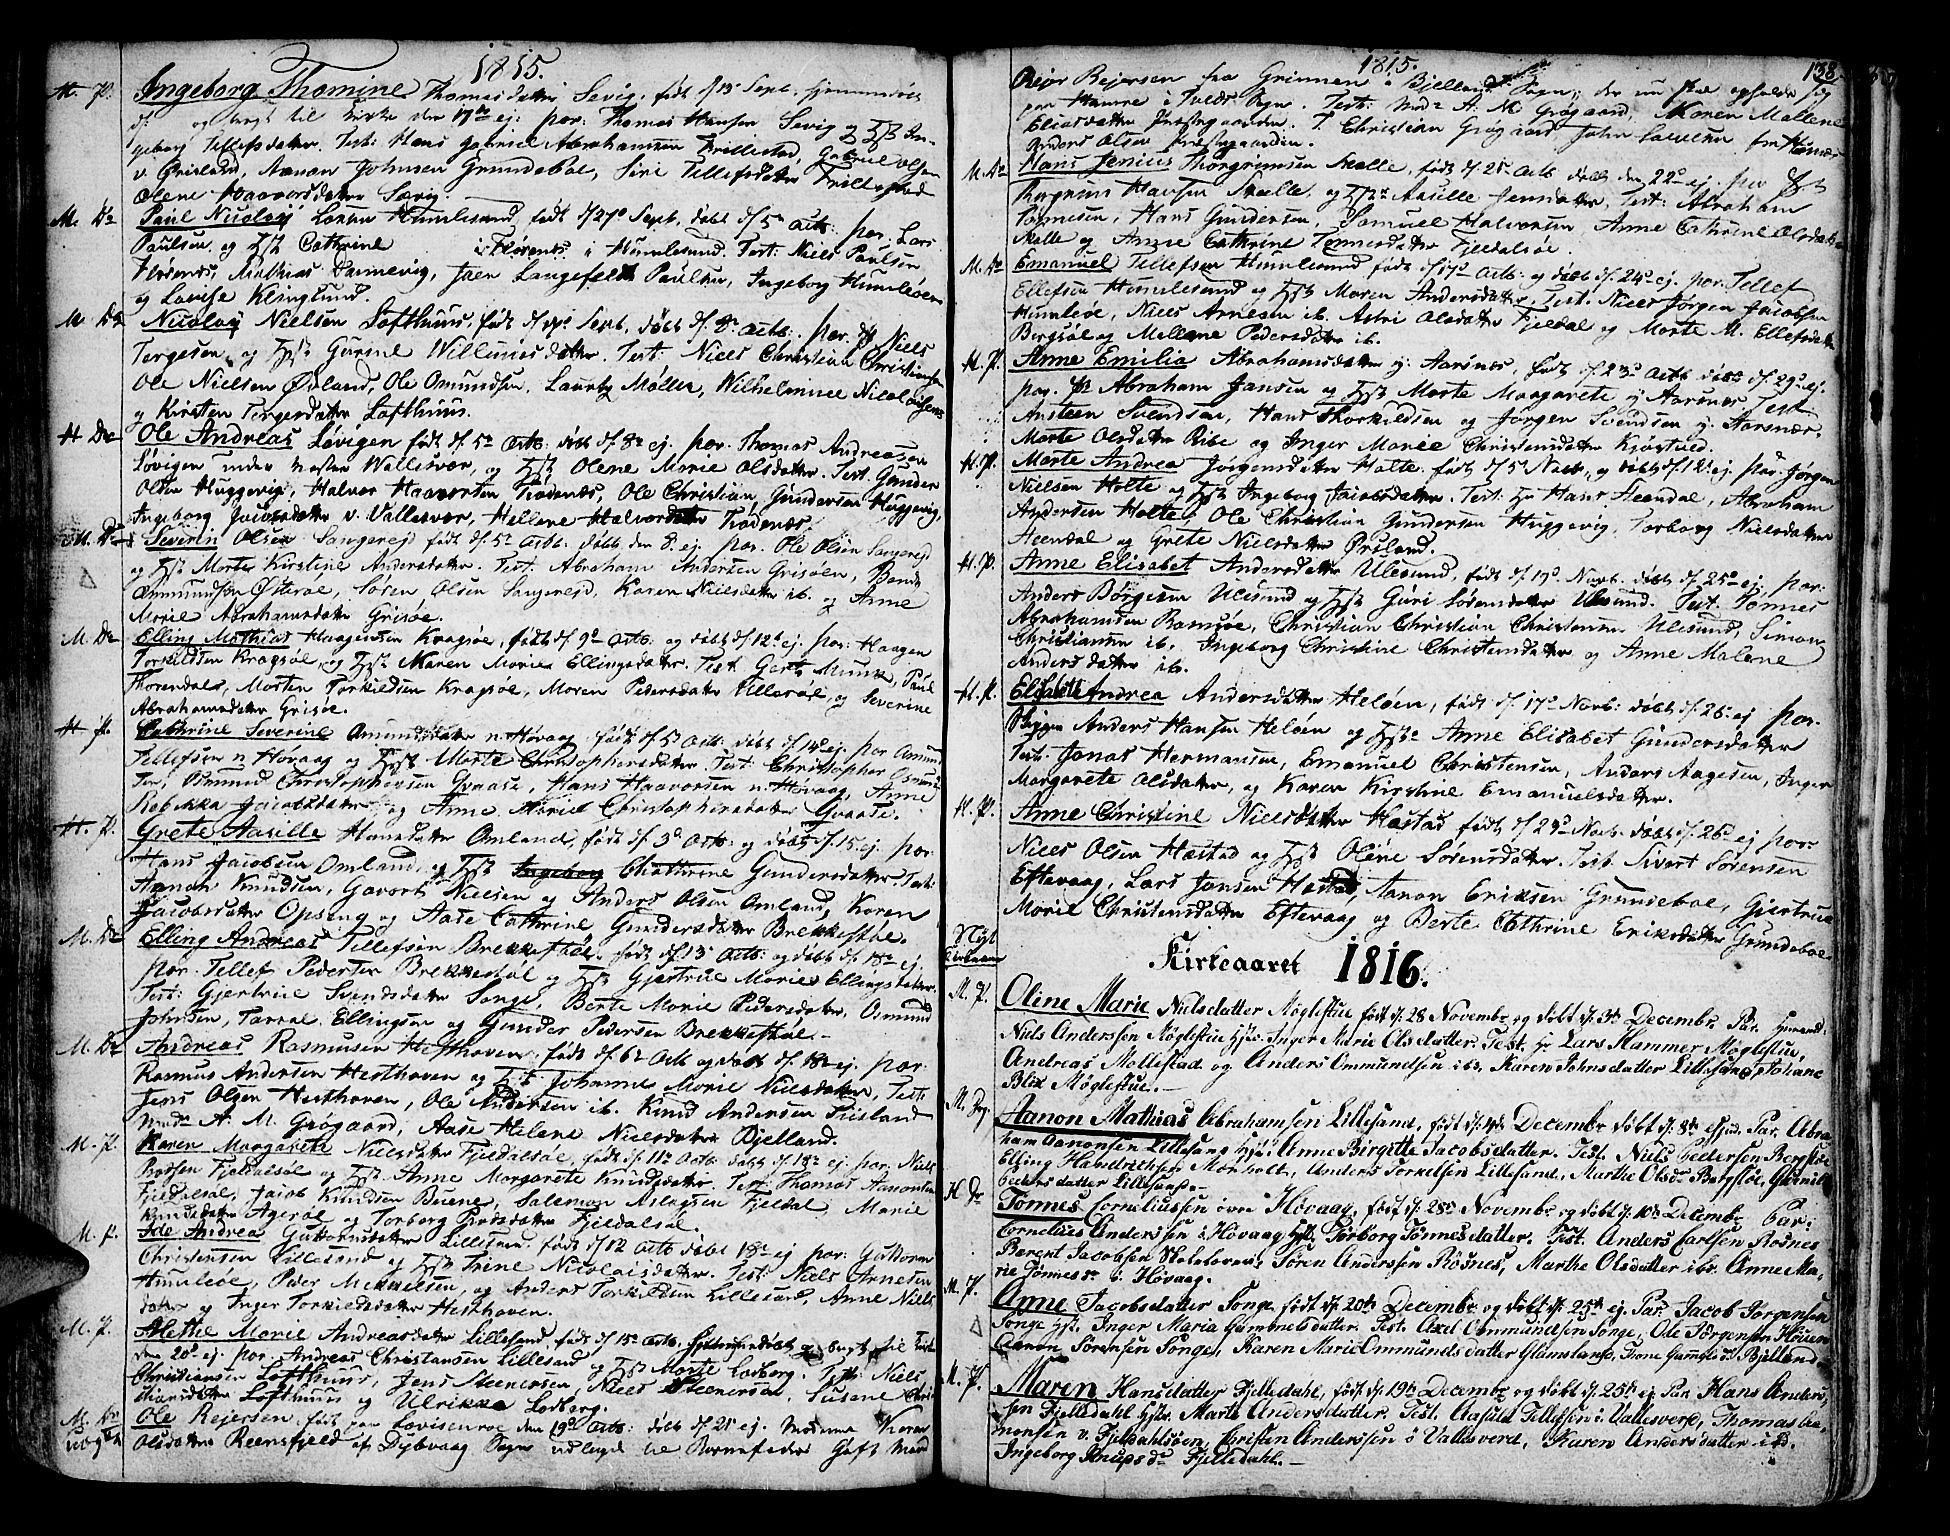 1815.
H. P. Ingeborg Thomine Thomasdatter Sevig, født d/13 Sept, hjemmedøbt
d/ og bragt til Kirke den 17de ej. par: Thomas Hansen Sevig og Hst In-
geborg Tellefsdatter. Test: Hans Gabriel Abrahamsen Trillestad, Gabriel Olsen
v. Grisland, Aanon Johnsen Grundeboe, Siri Tellefsdatter Trillestad
Olene Haavorsdatter Sævig.
M. Dr Paul Nicolay Larsen Humlesund, født d/27de Sept. døbt d/5te Octb: par, Lars
Paulsen, og Hst Cathrine i Humlesund. Test: Niels Paulsen
Mathias Dannevig, Jacn Langefeldt Paulsen, Ingeborg Humløen
og Lovise Klinglund.
M. Dr Nicolay Nielsen Lofthuus, født d/ Sept, døbt d/8de Octb: par. Niels
Tergesen, og Hst Gurine Willumsdatter. Test: Niels Christian Christiansen
Ole Nielsen Ørsland, Ole Omundsen, Lauritz Møller, Wilhelmine Nicolaisen
og Kirsten Tergesdatter Lofthuus.
H. Dr Ole Andreas Løvigen født d/5te Octb: døbt d/8de ej. par. Thomas Andreasen
Løvigen Wallesvær, og Hst Olene Marie Olsdatter. Test. Gunder
Olsen Huggevig, Halvor Haavorsen Trødenæs, Ole Christian Gundersen Huggevig,
Ingeborg Jacobsdatter v. Vallesvær, Hellene Halvorsdatter Trødenæs.
M. Dr Severin Olsen Sangereid født d/5te Octb. døbt den 8. ej. par. Ole Olsen Sangereid
og Hst Morte Kirstine Andersdatter. Test. Abraham Andersen Grisøen, Bendt
Ommundsen Østerøe, Søren Olsen Sangereid, Karen Nielsdatter ib. og Anne
Marie Abrahamsdatter Grisøe.
M. Dr Elling Mathias Haagensen Kragsøe, født d/9de Octb. og døbt d/12te ej. par: Haagen
Torkildsen Kragsøe, og Hst Maren Marie Ellingsdatter. Test. Gert Munk, Paul
Thorendals, Morten Torkildsen Kragsøe, Maren Pedersdatter Ullerøe, og Severine
Abrahamsdatter Grisøe.
H. P. Cathrine Severine Omundsdatter n. Høvaag født d/5te Octb. døbt d/14de ej. par Omund
Tellefsen n. Høvaag og Hst Morte Christophersdatter. Test. Christopher
Osmund Christophersen Qvaase, Hans Haavorsen n. Høvaag, Anne
Rebekka Jacobsdatter og Anne Marie Christophersdatter Qvaase.
H. P. Grete Aasille Hansdatter Omland, født d/3de Octb: og døbt d/15. ej. par.
Hans Jacobsen Omland, og Hst Ingeborg Chathrine Gundersdatter. Test:
Aanon Knudsen, Gavort Nielsen og Anders Olsen Omland, Karen
Jacobsdatter Opsang og Aase Cathrine Gundersdatter Brekkestøe.
M. Dr Elling Andreas Tellefsen Brekkestøe, født d/13 Octb: og døbt d/18de ej.
par. Tellef Pedersen Brekkestøe og Hst Gjertrue Marie Ellingsdatter.
Test: Gjertrue Svendsdatter Songe, Berte Marie Pedersdatter, Osmund
Johnsen, Taraal Ellingsen og Gunder Pedersen Brekkestøe.
M. Dr Andreas Rasmusen Hesthaven, født d/6te Octb og døbt d/18de ej. par:
Rasmus Andersen Hesthaven og Hst Johanne Marie Nielsdatter, Test:
Jens Olsen Hesthaven, Ole Andersen ib. Knud Andersen Tiisland
Mad: A. M. Grøgaard, Aase Helene Nielsdatter Bjelland.
M. P. Karen Margarete Nielsdatter Fjeldalsøe, født d/11te Octb døbt d/18de ej par: Niels
Fjeldalsøe og Hst Anne Margarete Knudsdatter. Test: Thomas Aanonsen
Fjeldalsøe, Jacob Knudsen Buene, Salemon Aslagsen Fjeldal, Marie
Knudsdatter Agerøe og Torborg Fjeldalsøe.
M. P. Ide Andrea Guttormsdatter Lillesand, født d/12 Octb døbt 18de ej par: Guttorm
Christensen Lillesand og Hst Trine Nicolaisdatter. Test: Niels Arnesen
Humleøe, Peder Mikkelsen, og Anders Torkildsen Lillesand, Anne Niels
datter og Inger Torkildsdatter Hesthaven.
M. P. Alethe Marie Andreasdatter Lillesand, født d/15de Octb. hjemmedøbt og bragt til Kirke
den 20de ej. par. Andreas Christiansen Lillesand og Hst Morte Lodberg. Test: Niels
Christiansen Lofthuus, Jens Steenersen, Niels Steenersen, Susane
Hansdatter Lofthuus og Ulrikke Lodberg.
M. Dr uægte Ole Rejersen, født den 19de Octb: døbt d/21 ej. Moderen Karen
Olsdatter Reensfjeld af Dybvaag Sogn udlagde til Barnefader Gift Mand
1815. 138
Rejer Rejersen fra Grimnen i Bjelland Sogn, der nu skal opholde sig
paa Hamre i Tveds Sogn. Test: Mad: A. M. Grøgaard, Maren Mallene
Eliasdatter Præstegaarden. T. Christian Grøgaard John Larsen fra
Anders Olsen Præstegaarden.
M. Dr Hans Jenius Thorgremsen Skalle, født d/21 Octb døbt den 22de ej. par
Torgrim Hansen Skalle, og Hst Aasille Jensdatter, Test: Abraham
Tønnesen, Hans Gundersen, Samuel Halvorsen, Anne Cathrine Olsdatter
Skalle og Anne Cathrine Tønnesdatter Fjeldalsøe.
M. Dr Emanuel Tellefsen Humlesund født d/17de Octb: og døbt d/24de ej. par. Tellef
Ellefsen Humlesund og Hst Maren Andersdatter, Test: Niels Jørgen Jacobsen
Humleøe, Niels Arnesen ib. Astri Olsdatter Fjeldal og Morte M. Ellefsdatter
Bergsøe og Mellene Pedersdatter ib.
H. P. Anne Emilia Abrahamsdatter y: Aarsnæs, født d/23de Octb døbt d/29de ej.
par. Abraham Jansen og Hst Morte Margarete y: Aarsnæs Test
Ansteen Svendsen, Hans Thorkildsen og Jørgen Svendsen y: Aarsnær.
Morte Olsdatter Ribe og Inger Marie Christensdatter Kjøstved.
H. P. Morte Andrea Jørgensdatter Holte. født d/5te Novb, og døbt d/12te ej. par. Jørgen
Nielsen Holte og Hst Ingeborg Jacobsdatter. Test: Hr Hans Steendal, Abraham
Andersen Holte, Ole Christian Gundersen Huggevig, Torborg Nielsdatter
Steendal og Grete Nielsdatter Ørsland.
H. P. Anne Elisabet Andersdatter Ulesund, født d/19de Novb. døbt d/25de ej. par:
Anders Børgesen Ulesund og Hst Guri Sørensdatter Ulesund. Test. Tønnes
Abrahamsen Ramsøe, Christian Christian Christensen Ulesund, Simon
Christiansen ib. Ingeborg Christine Christensdatter og Anne Malene
Andersdatter ib.
H. P. Elisabeth Andrea Andersdatter Heløen, født d/17de Novb: døbt d/26. ej par.
Anders Hansen Heløen og Hst Anne Elisabet Gundersdatter
Test. Jonas Hermansen, Emanuel Christensen, Anders Aagesen, Inger
Margarete Olsdatter, og Karen Kirstine Emanuelsdatter.
H. P. Anne Christine Nielsdatter Hæstad født d/23de Novb. døbt d/26de ej par
Niels Olsen Hæstad og Hst Olene Sørensdatter. Test. Sivert Sørensen
Eftevaag, Lars Jansen Hæstad, Aanon Eriksen Grundeboe, Gjertrue
Marie Christensdatter Eftevaag og Berte Cathrine Eriksdatter Grundeboe
Nyt Kirkeaar Kirkeaaret 1816.
M. P. Oline Marie Nielsdatter Møglestue født d/28 Novembr og døbt d/3de Decembr Par. Huusmd.
Niels Anderssen Møglestue Hst. Inger Marie Olsdatter. Test. Hr Lars Hammer Møglestue,
Andreas Mollestad og Anders Ommundsen ibs, Karen Johnsdatter Lillesand, Johane
Blix Møglestue.
M. Dr. Aanon Mathias Abrahamsen Lillesand, født d/4de Decembr døbt d/8de ejusd. Par. Abra
ham Aanonsen Lillesand Hst: Anne Birgitte Jacobsdatter. Test. Niels Pedersen Bergsløe
Elling Hendrichsen Morholt, Anders Torkelsen Lillesand, Marthe Olsdr Bergsløe, Gunnild
Pedersdatter Lillesand.
H. Dr Tønnes Corneliussen øvre Høvaag, født d/28de Novembr og døbt d/10de Decembr Par.
Cornelius Anderssen i Høvaag Hst. Torborg Tønnesdatter. Test. Anders Carlsen Rosnes
Berent Jacobsen Skokeloven, Søren Anderssen Rosnes, Marthe Olsdatter ibs. Anne Ma,
rie Tønnesdr i Høvaag.
M. P. Anne Jacobsdatter Songe, født d/20de Decembr og døbt d/25de ej. Par. Jacob Jørgensen
Songe Hst. Inger Maria Gammelsdatter. Test. Axel Ommundsen Songe, Ole Jørgensen
Aanon Sørensen Songe, Karen Marie Ommundsdatter Glamsland, Trone Bjelland
M. P. Maren Hansdatter Fjelledahl, født d/19de Decembr og døbt d/25de ej Par Hans Anders,
sen Fjelledahl Hst. Marte Andersdatter. Test. Aasuld Tellefsen i Vallesverd, Thomas Sa-
monsen v. Fjeldahlsøen, Christen Anderssen i Vallesverd, Karen Andersdatter ibd.
Ingeborg Knudsdr Fjelledahl.